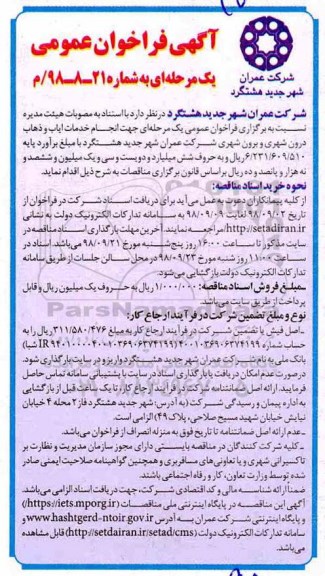 آگهی فراخوان عمومی
یک مرحله‌ای به شماره ۲۱-۸-۹۸/م
شرکت عمران
شهر جدید هشتگرد
شرکت عمران شهر جدید هشتگرد در نظر دارد با استناد به مصوبات هیئت مدیره
نسبت به برگزاری فراخوان عمومی یک مرحله‌ای جهت انجام خدمات ایاب و ذهاب
درون شهری و برون شهری شرکت عمران شهر جدید هشتگرد با مبلغ برآورد پایه
۶/۲۳۱/۶۰۹/۵۱۰ ریال و به حروف شش میلیارد و دویست و سی و یک میلیون و ششصد و
نه هزار و پانصد و ده ریال بر اساس قانون برگزاری مناقصات به شرح ذیل اقدام نماید.
نحوه خرید اسناد مناقصه:
از کلیه پیمانکاران دعوت بعمل می آید برای دریافت اسناد شرکت در فراخوان از
تاریخ ۹۸/۰۹/۰۲ لغایت ۹۸/۰۹/۰۹ به سامانه تدارکات الکترونیک دولت به نشانی
http://setadiran.ir مراجعه نمایند. آخرین مهلت بارگذاری اسناد مناقصه در
سایت مذکور تا ساعت ۱۶:۰۰ روز پنج‌شنبه مورخ ۹۸/۰۹/۲۱ می‌باشد. اسناد در
ساعت ۱۱:۰۰ روز شنبه مورخ ۹۸/۰۹/۲۳ در محل سالن جلسات از طریق سامانه
تدارکات الکترونیک دولت بازگشایی می‌شود.
ـ مبلغ فروش اسناد مناقصه: ۱/۰۰۰/۰۰۰ ریال به حروف یک میلیون ریال و قابل
پرداخت از طریق سایت می‌باشد.
نوع و مبلغ تضمین شرکت در فرآیند ارجاع کار:
ـ اصل فیش یا تضمین شرکت در فرآیند ارجاع کار به مبلغ ۳۱۱/۵۸۰/۴۷۶ ریال را به
حساب شماره
بانک ملی به نام شرکت عمران شهر جدید هشتگرد واریز و در سایت بارگذاری شود.
در صورت عدم امکان دریافت یا بارگذاری اسناد در سایت با پشتیبانی سامانه تماس حاصل
فرمایید. ارائه اصل ضمانتنامه شرکت در فرآیند ارجاع کار، تا یک ساعت قبل از بازگشایی
به اداره پیمان و رسیدگی شرکت (به آدرس: شهر جدید هشتگرد فاز ۲ محله ۴ خیابان
نیایش خیابان شهید مسیح صلاحی، پلاک ۴۹) الزامی است.
ـ عدم ارائه اصل ضمانتنامه تا تاریخ فوق به منزله انصراف از فراخوان می‌باشد.
ـ کلیه شرکت کنندگان در مناقصه بایستی دارای مجوز سازمان مدیریت و نظارت بر
تاکسیرانی شهری و یا تعاونی های مسافربری و همچنین گواهینامه صلاحیت ایمنی صادر
شده توسط وزارت تعاون، کار و رفاه اجتماعی باشند.
ضمناً ارائه شناسه مالی و کد اقتصادی شرکت، جهت دریافت اسناد الزامی می‌باشد.
آگهی این مناقصه در پایگاه اینترنتی ملی مناقصات (https://iets.mporg.ir)
و پایگاه اینترنتی شرکت عمران به آدرس www.hashtgerd-ntoir.gov.ir و
سامانه تدارکات الکترونیک دولت (http://setdairan.ir/setad/cms) قابل مشاهده
می‌باشد.